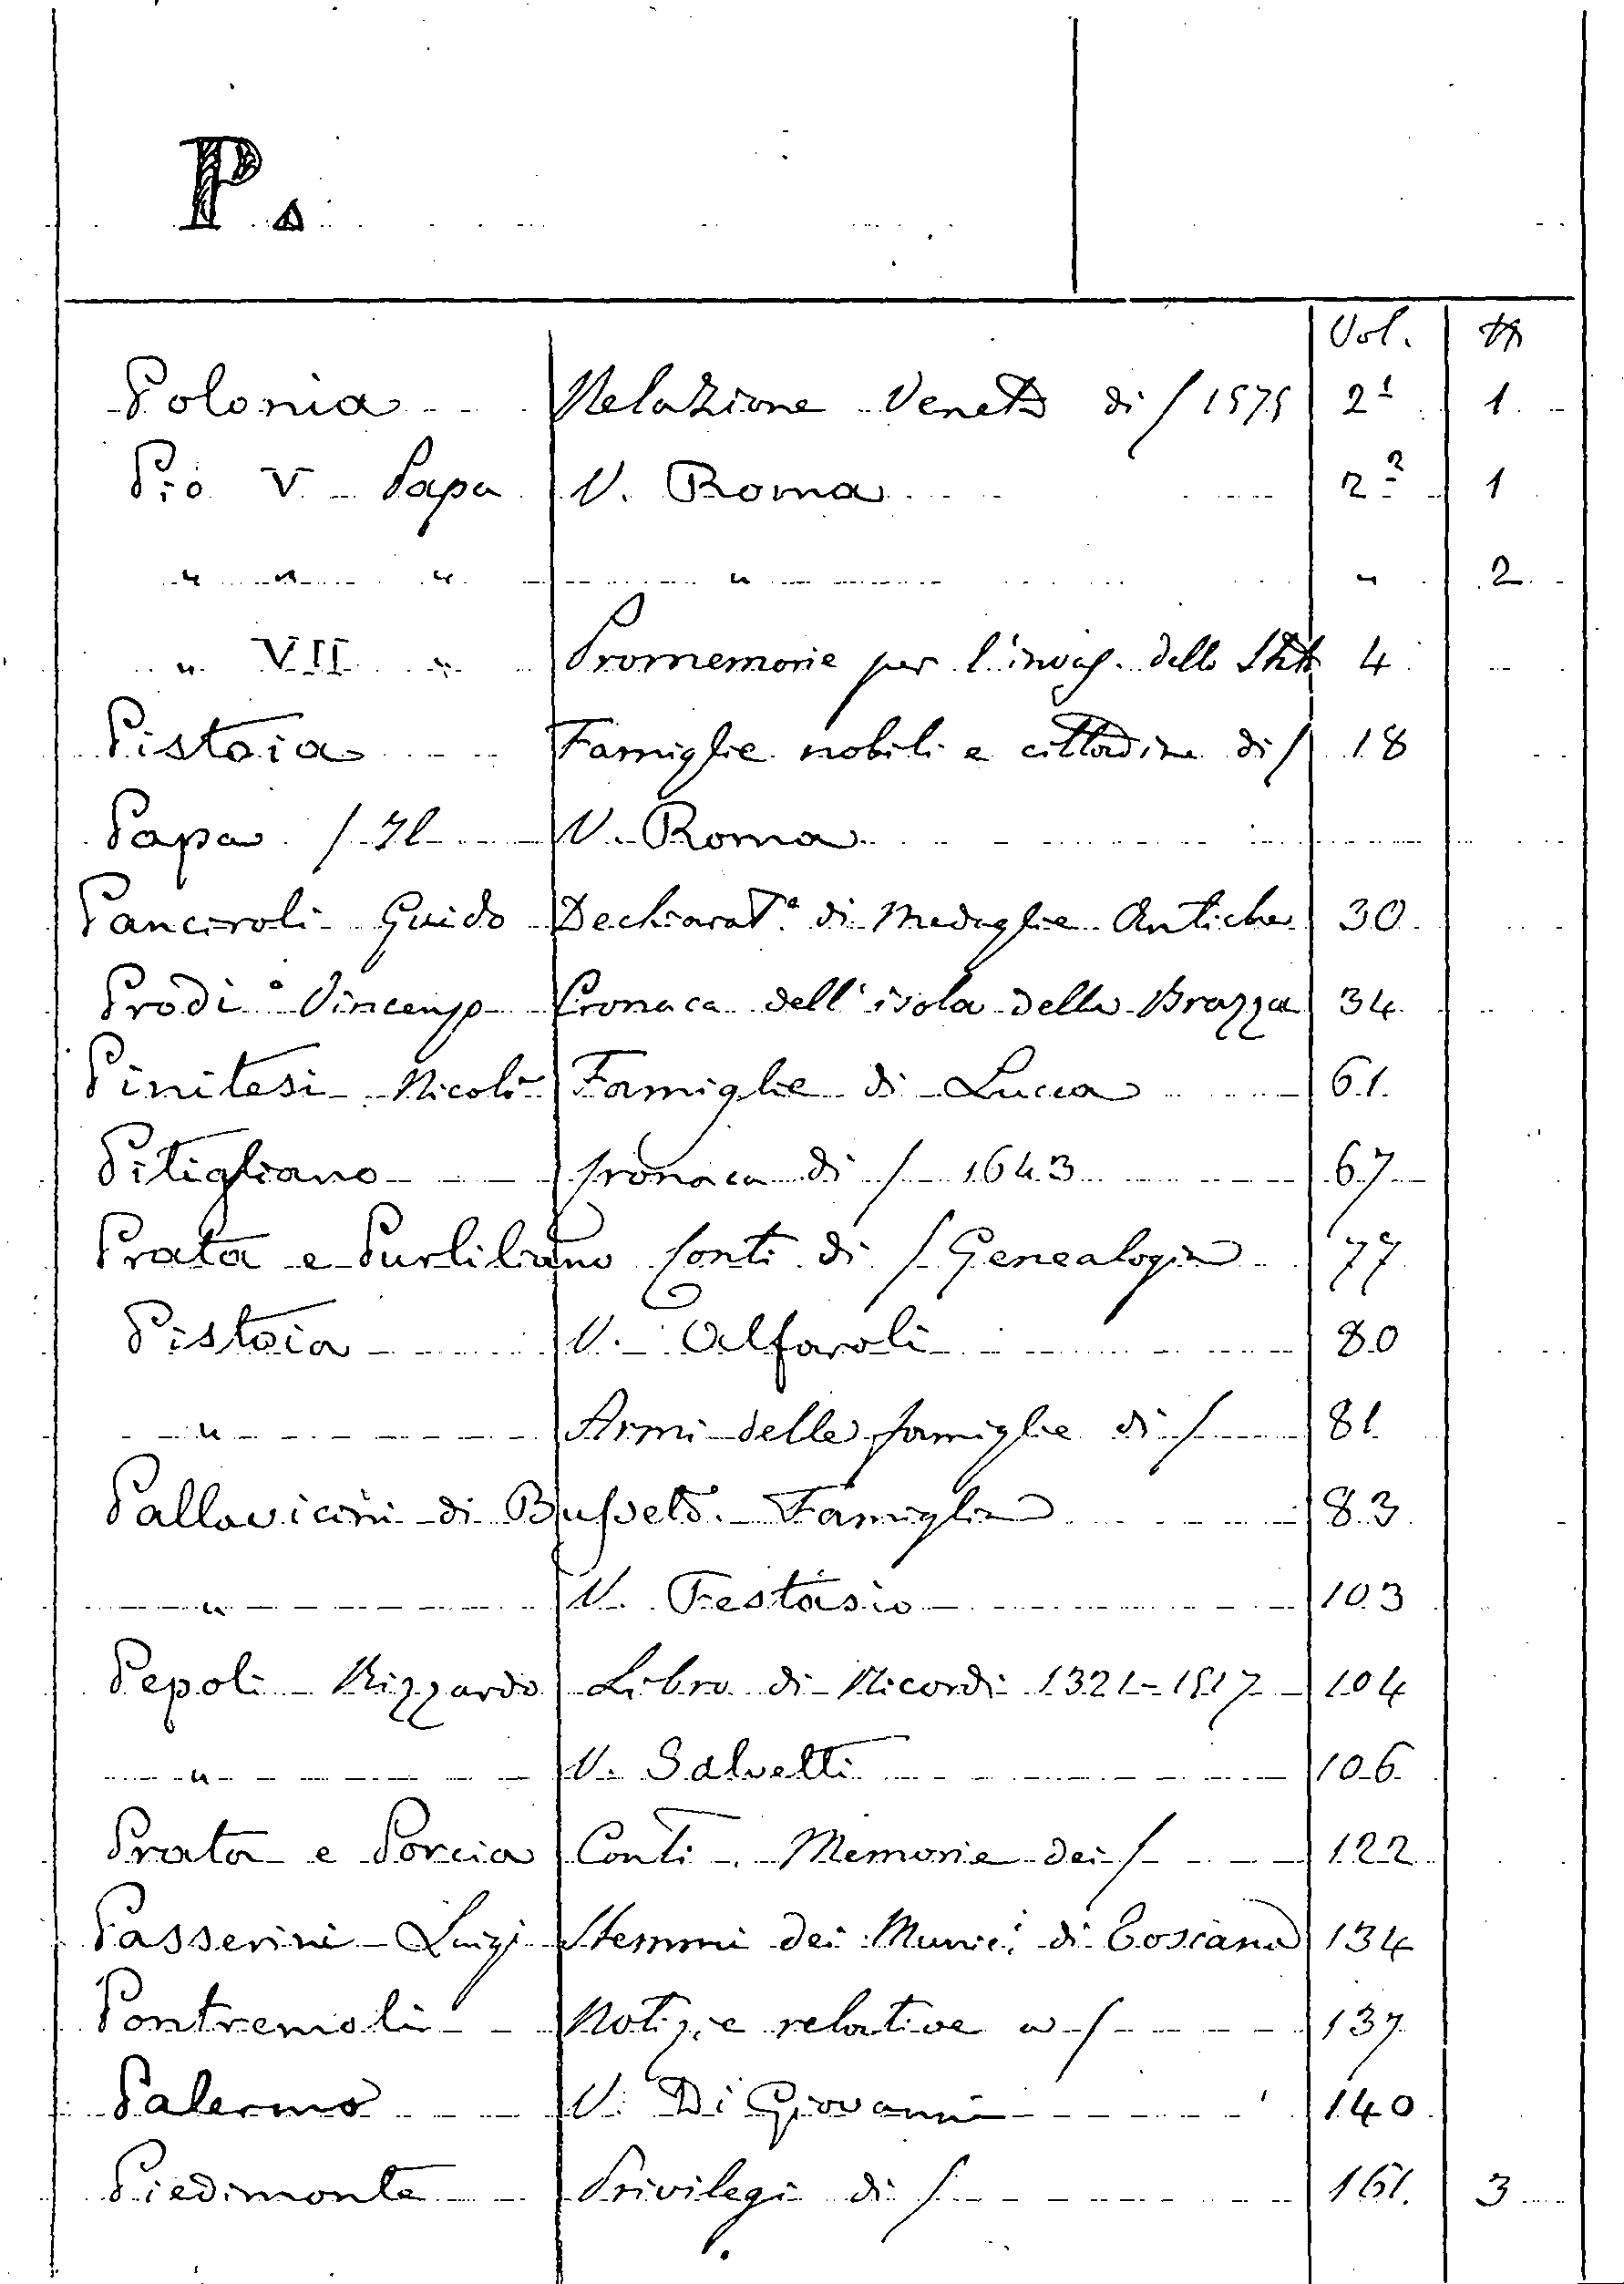 P.
Vol. №
Polonia Relazione Veneta di / 1575 2¹ 1
Pio V Papa V. Roma 2² 1
" " " " " 2
" VII " Promemorie per l'invas. dello Stato 4
Pistoia Famiglie nobili e cittadine di / 18
Papa / Il V. Roma
Panciroli Guido Dechiarat.ᵉ di Medaglie Antiche 30
Prodi Vincenzo Cronaca dell'isola della Brazza 34
Pinitesi Nicolò Famiglie di Lucca 61
Pitigliano Cronaca di / 1643 67
Prata e Purliliano Conti di / Genealogia 77
Pistoia V. Alfaroli 80
" Armi delle famiglie di / 81
Pallavicini di Busseto. Famiglia 83
" V. Festasio 103
Pepoli Rizzardo Libro di Ricordi 1321-1517 104
" V. Salvetti 106
Prata e Porcia Conti. Memorie dei / 122
Passerini Luigi Stemmi dei Munici. di Toscana 134
Pontremoli Notizie relative a / 137
Palermo V. Di Giovanni 140
Piedimonte Privilegi di / 161. 3